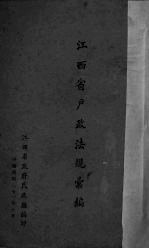 江西省戶政法規彙編
江西省政府民政廳編印